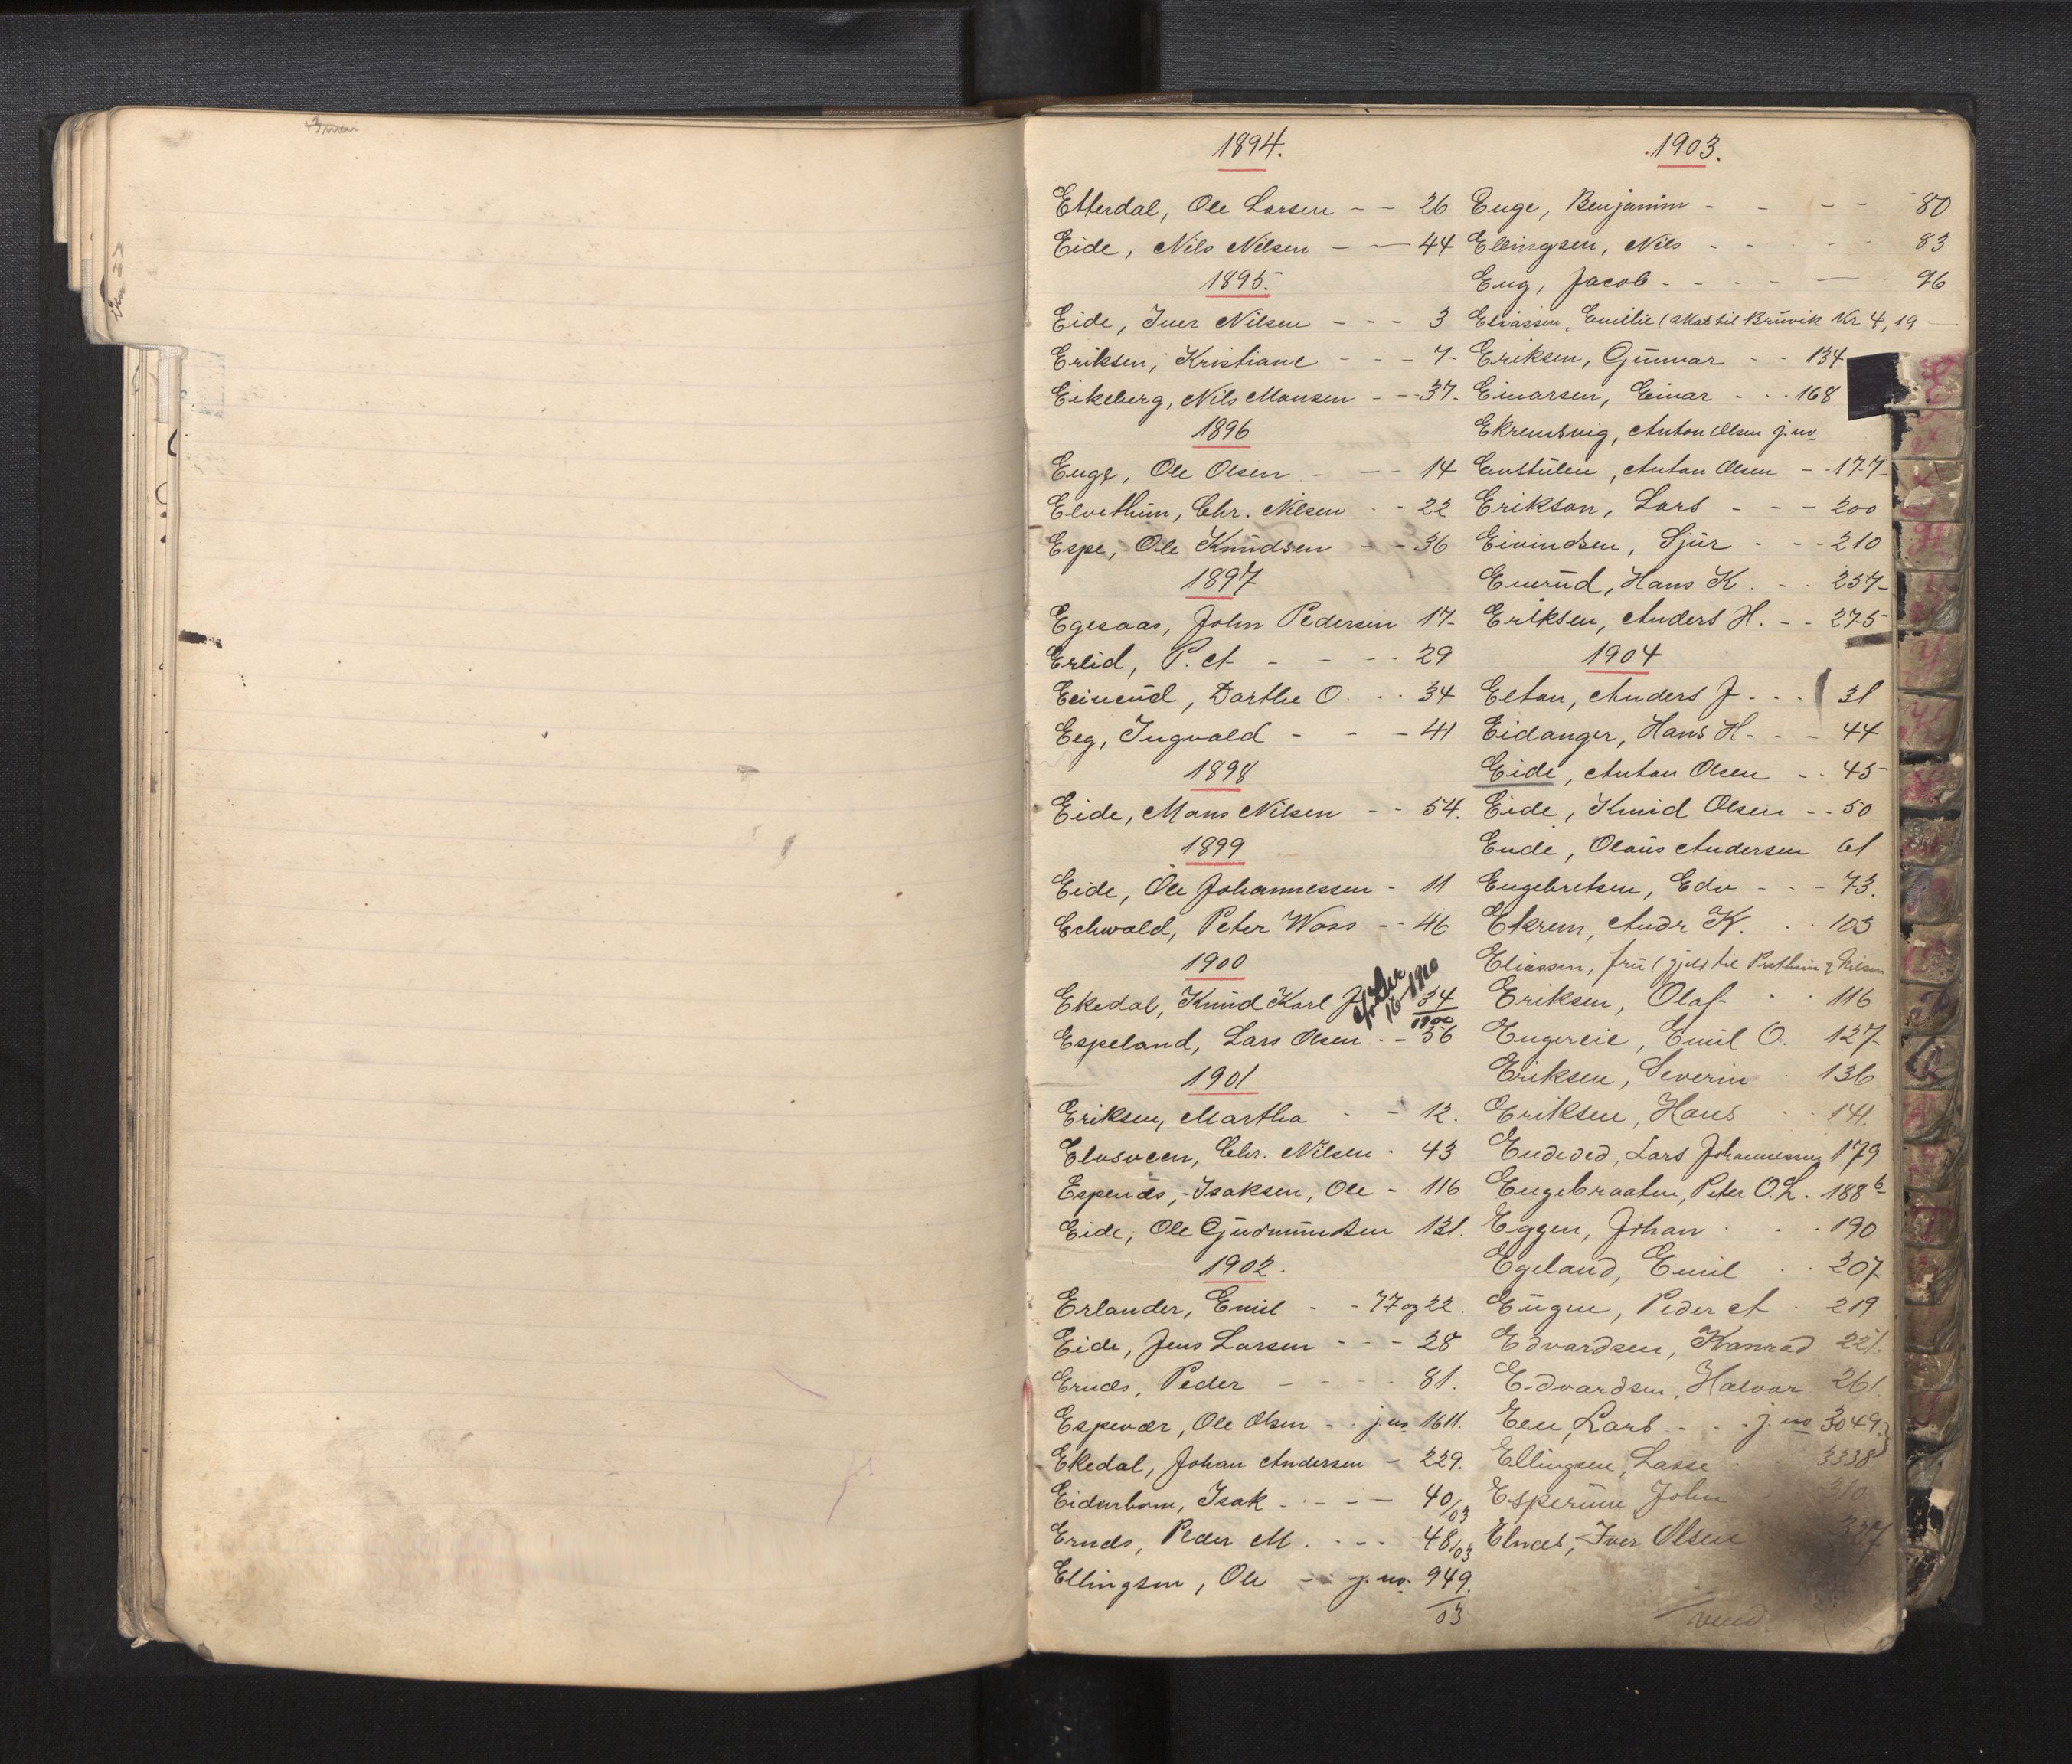 1894.
Etterdal, Ole Larsen - - 26
Eide, Nils Nilsen - - 44
1895.
Eide, Iver Nilsen - - - 3
Eriksen, Kristiane - - - 7
Eikeberg, Nils Monsen - - 37.
1896
Enge, Ole Olsen - - - 14
Elvethun, Chr. Nilsen - - 22
Espe, Ole Knudsen - - 36
1897
Egesaas, John Pedersen 17
Erlid, P. A - - - - 29
Dorthe O. - - 34
Eeg, Ingvald - - - 41
1898
Eide, Mons Nilsen - - 54.
1899
Eide, Ole Johannessen - 11
Echwald, Peter Wass - - 46
1900
Ekedal, Knud Karl J 34
1900
Espeland, Lars Olsen - - 56
1901
Eriksen, Martha - - 12.
Elvsveen, Chr. Nilsen - 43
Espenes, Isaksen, Ole - 116
Eide, Ole Gudmundsen 131.
1902.
Erlander, Emil - - 77 og 22.
Eide, Jens Larsen - - - 28
Ernes, Peder - - - - 81.
Espevær, Ole Olsen - - j.no. 1611.
Ekedal, Johan Andersen - 229.
Isak - - - - 40/03
Ernes, Peder M. - - - 48/03
Ellingsen, Ole - - j.no. 949.
03
1903.
Enge, Benjamin - - - - 80
Ellingsen, Nils - - - - 83
Eug, Jacob - - - - - 96
Eliassen, Emilie (skat til Bruvik Kr 4,19
Eriksen, Gunnar - - 134
Einarsen, Einar - - - 168
Ekremsvig, Anton Olsen j.no
Enstulen, Anton Olsen - - 177
Erikson, Lars - - - 200
Eivindsen, Sjur - - - 210
Enerud, Hans K. - - 257
Eriksen, Anders H. - - 275
1904
Eltan, Anders J - - - 31
Eidanger, Hans H. - - 44
Eide, Anton Olsen - - 45
Eide, Knud Olsen - - 50
Ende, Olaus Andersen 61
Engebretsen, Edv - - - 73.
Ekrem, Andr K. - - 103
Eliassen, fru (gjeld til
Eriksen, Olaf - - 116
Engereie, Emil O. 127
Eriksen, Severin - 136
Eriksen, Hans - - 141.
Lars Johannessen 179
Engebraaten, Peter O.L. 188 b
Eggen, Johan - - - 190
Egeland, Emil - - 207
Eugen, Peder A - 219
Edvardsen, Konrad 221.
Edvardsen, Halvor 261.
Een, Lars - - - j.no 3049.
Ellingsen, Lasse 3338
John 310
Elnes, Iver Olsen 327
vend